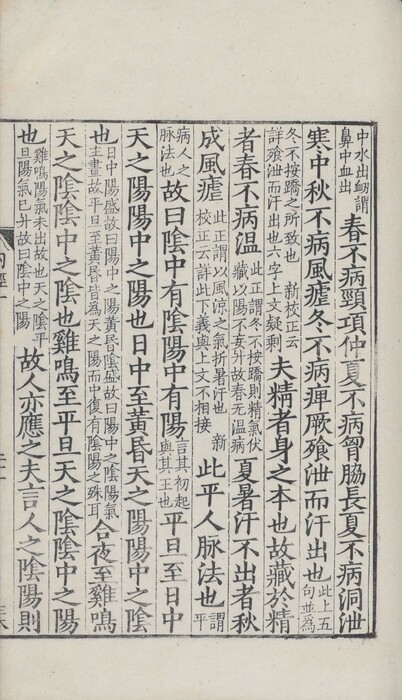 中水出衂謂鼻中血出春不病頸項仲夏不病胷脇長夏不病洞泄
寒中秋不病風瘧冬不病痺厥飱泄而汗出也此上五句並為
冬不按蹻之所致也 新校正云詳飱泄而汗出也六字上文疑剩夫精者身之本也故藏於精
者春不病溫此正謂冬不按蹻則精氣伏藏以陽不妄升故春无溫病夏暑汗不出者秋
成風瘧此正謂以風涼之氣折暑汗也 新校正云詳此下義與上文不相接此平人脉法也謂平
病人之脉法也故曰陰中有陰陽中有陽言其初起與其王也平旦至日中
天之陽陽中之陽也日中至黃昏天之陽陽中之陰
也日中陽盛故曰陽中之陽黃昏陰盛故曰陽中之陰陽氣主晝故平旦至黃昏皆為天之陽而中復有陰陽之殊耳合夜至雞鳴
天之陰陰中之陰也雞鳴至平旦天之陰陰中之陽
也雞鳴陽氣未出故曰天之陰平旦陽氣已升故曰陰中之陽故人亦應之夫言人之陰陽則